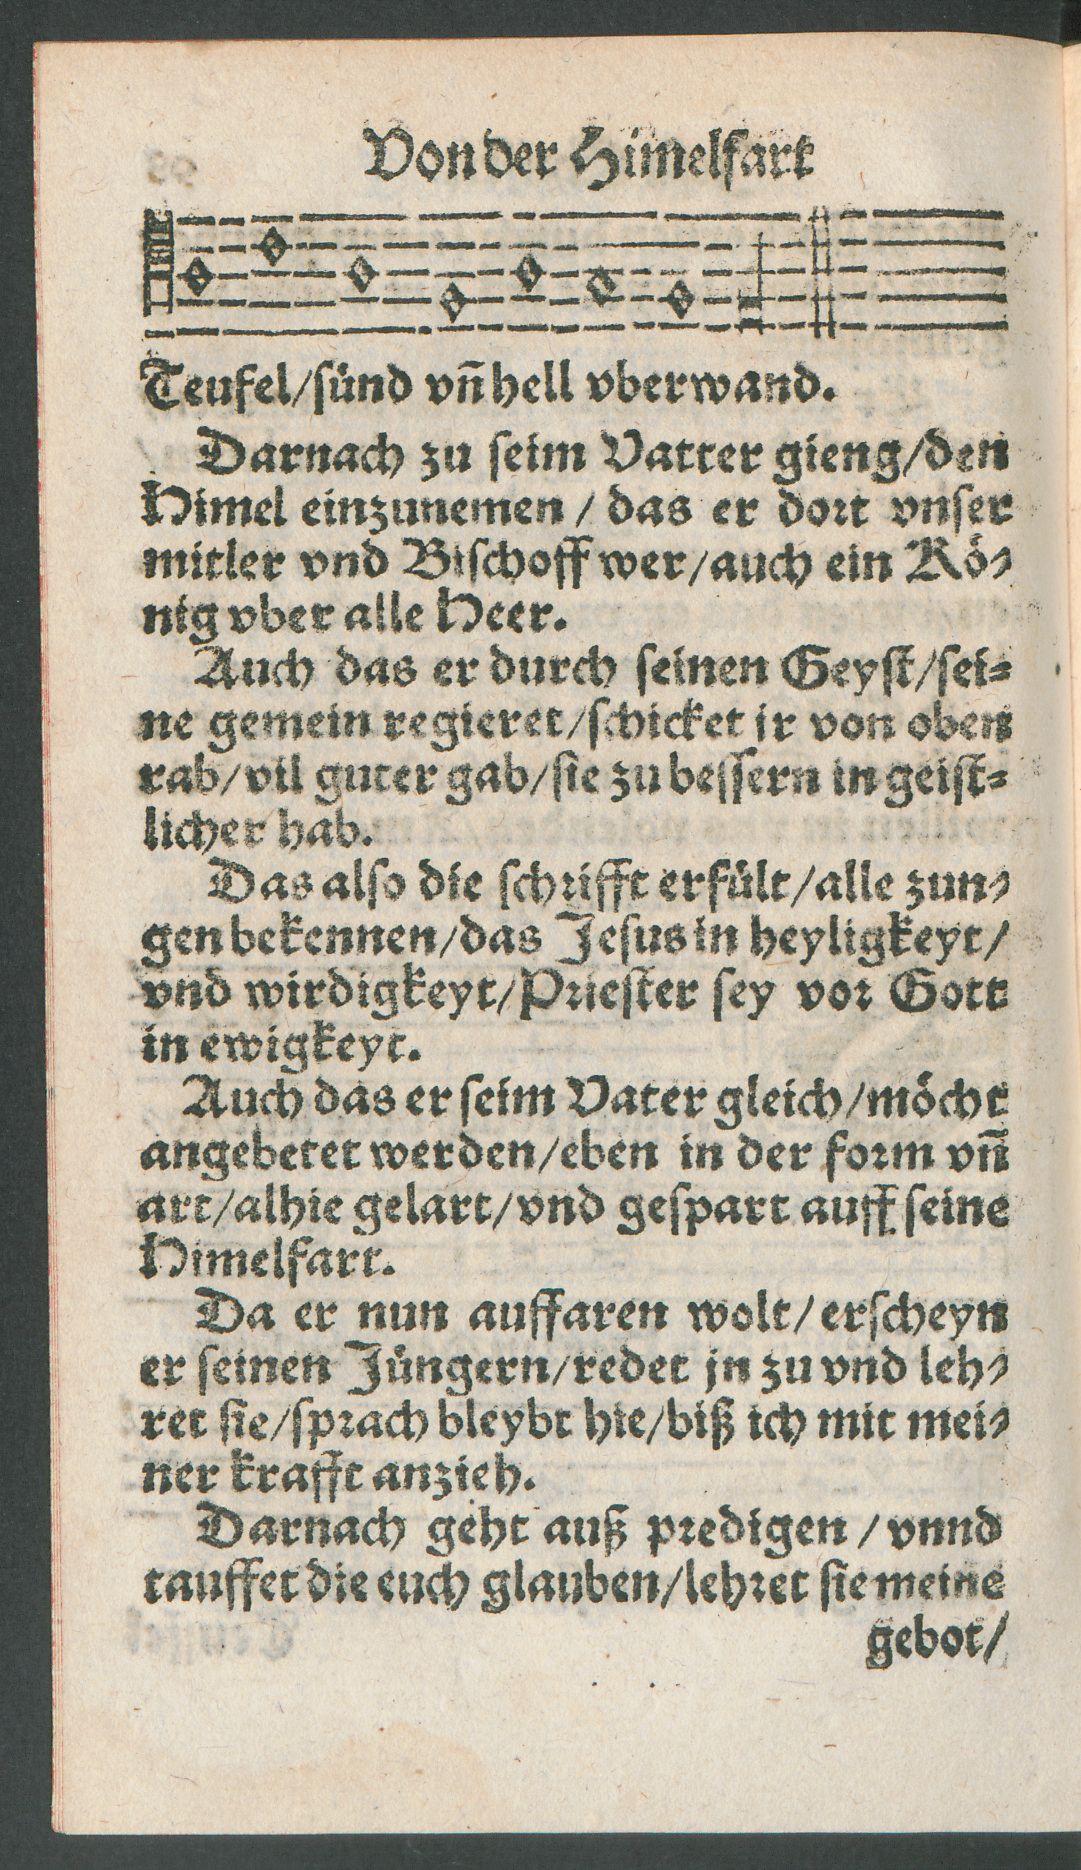 Von der Himelfart
Teufel/sünd vn̄ hell vberwand.
Darnach zu seim Vatter gieng/den
Himel einzunemen / das er dort vnser
mitler vnd Bischoff wer/auch ein Kö-
nig vber alle Heer.
Auch das er durch seinen Geyst/sei-
ne gemein regieret/schicket jr von oben
rab/vil guter gab/sie zu bessern in geist-
licher hab.
Das also die schrifft erfült/alle zun-
gen bekennen/das Jesus in heyligkeyt/
vnd wirdigkeyt/Priester sey vor Gott
in ewigkeyt.
Auch das er seim Vater gleich/möcht
angebetet werden/eben in der form vn̄
art/alhie gelart/vnd gespart auff seine
Himelfart.
Da er nun auffaren wolt/erscheyn
er seinen Jüngern/redet jn zu vnd leh-
ret sie/sprach bleybt hie/biß ich mit mei-
ner krafft anzieh.
Darnach geht auß predigen / vnnd
tauffet die euch glauben/lehret sie meine
gebot/